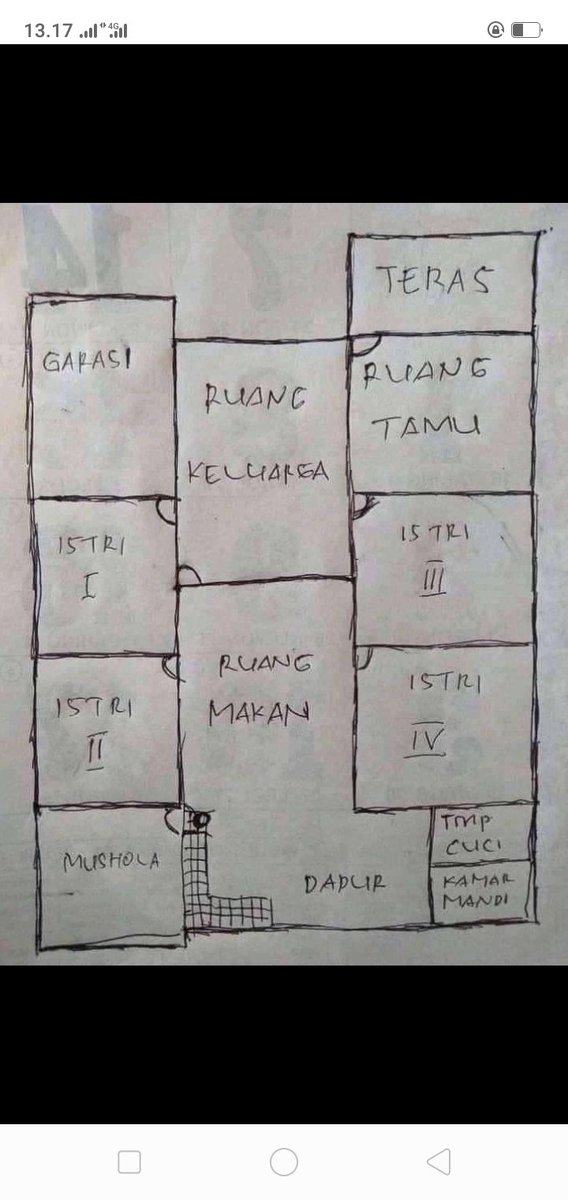 13.17
4G
TERAS
GARASI
RUANG
TAMU
RUANG
KELUARGA
ISTRI
I
ISTRI
III
RUANG
MAKAN
ISTRI
II
ISTRI
IV
TMP
CUCI
MUSHOLA
DAPUR
KAMAR
MANDI